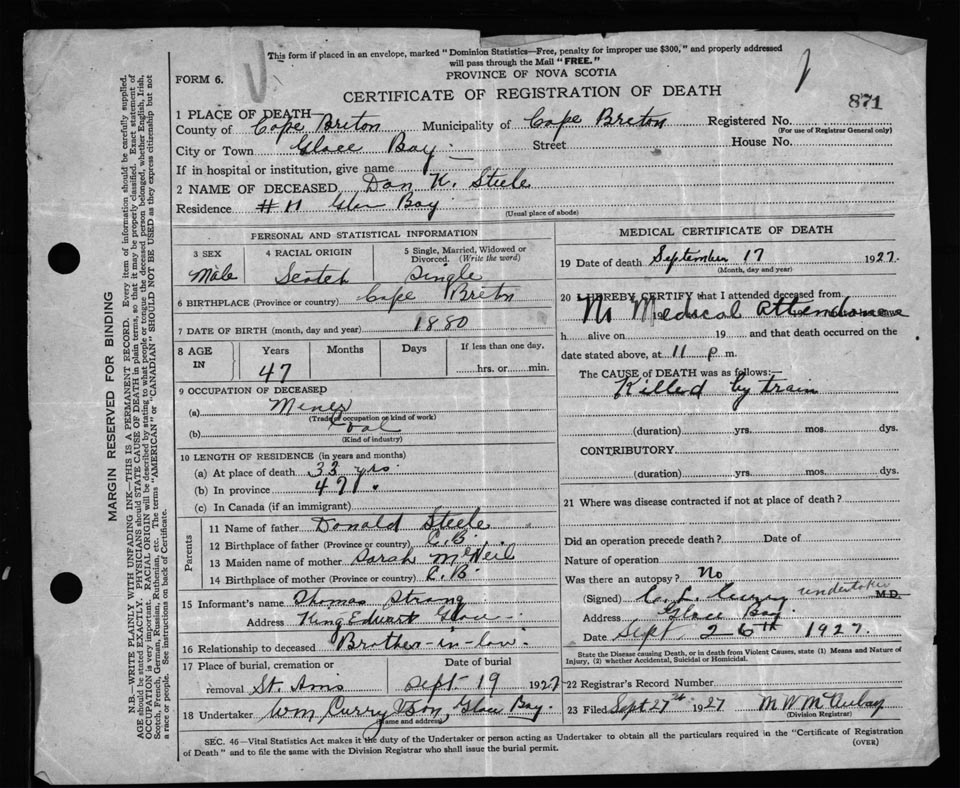 This form if placed in an envelope, marked "Dominion Statistics—Free, penalty for improper use $300," and properly addressed
will pass through the Mail "FREE."
FORM 6.
PROVINCE OF NOVA SCOTIA
CERTIFICATE OF REGISTRATION OF DEATH
871
1 PLACE OF DEATH
County of Cape Breton Municipality of Cape Breton Registered No.
(For use of Registrar General only)
City or Town Glace Bay Street House No.
If in hospital or institution, give name
2 NAME OF DECEASED Dan K. Steele
Residence # 11 Glace Bay
(Usual place of abode)
PERSONAL AND STATISTICAL INFORMATION
3 SEX
Male
4 RACIAL ORIGIN
Scotch
5 Single, Married, Widowed or
Divorced. (Write the word)
Single
6 BIRTHPLACE (Province or country) Cape Breton
7 DATE OF BIRTH (month, day and year) 1880
8 AGE IN
Years Months Days If less than one day,
47 hrs. or min.
9 OCCUPATION OF DECEASED
(a) Miner
(Trade or occupation or kind of work)
(b) Coal
(Kind of industry)
10 LENGTH OF RESIDENCE (in years and months)
(a) At place of death 33 yrs.
(b) In province 47 "
(c) In Canada (if an immigrant)
Parents
11 Name of father Donald Steele
12 Birthplace of father (Province or country) C.B.
13 Maiden name of mother Sarah McNeil
14 Birthplace of mother (Province or country) C.B.
15 Informant's name Thomas Strang
Address King Edward Glace
16 Relationship to deceased Brother-in-law.
17 Place of burial, cremation or
removal St. Anns
Date of burial
Sept 19 1927
18 Undertaker Wm Curry & Son, Glace Bay.
(name and address)
MEDICAL CERTIFICATE OF DEATH
19 Date of death September 17 1927.
(Month, day and year)
20 I HEREBY CERTIFY that I attended deceased from
No Medical Attendance
h alive on 19 and that death occurred on the
date stated above, at 11 p. m.
The CAUSE of DEATH was as follows:—
Killed by train
(duration) yrs. mos. dys.
CONTRIBUTORY
(duration) yrs. mos. dys.
21 Where was disease contracted if not at place of death?
Did an operation precede death? Date of
Nature of operation
Was there an autopsy? No
(Signed) C. L. Curry undertaker M.D.
Address Glace Bay
Date Sept 26th 1927.
State the Disease causing Death, or in death from Violent Causes, state (1) Means and Nature of
Injury, (2) whether Accidental, Suicidal or Homicidal.
22 Registrar's Record Number
23 Filed Sept 27th 1927 M W McAulay
(Division Registrar)
SEC. 46—Vital Statistics Act makes it the duty of the Undertaker or person acting as Undertaker to obtain all the particulars required in the "Certificate of Registration
of Death" and to file the same with the Division Registrar who shall issue the burial permit.
(OVER)
MARGIN RESERVED FOR BINDING
N.B.—WRITE PLAINLY WITH UNFADING INK—THIS IS A PERMANENT RECORD. Every item of information should be carefully supplied.
AGE should be stated EXACTLY. PHYSICIANS should STATE CAUSE OF DEATH in plain terms, so that it may be properly classified. Exact statement of
OCCUPATION is very important. RACIAL ORIGIN will be described by stating to what people or tongue the deceased person belonged, whether English, Irish,
Scotch, French, German, Russian, Ruthenian, etc. The terms "AMERICAN" or "CANADIAN" SHOULD NOT BE USED as they express citizenship but not
a race or people. See instructions on back of Certificate.